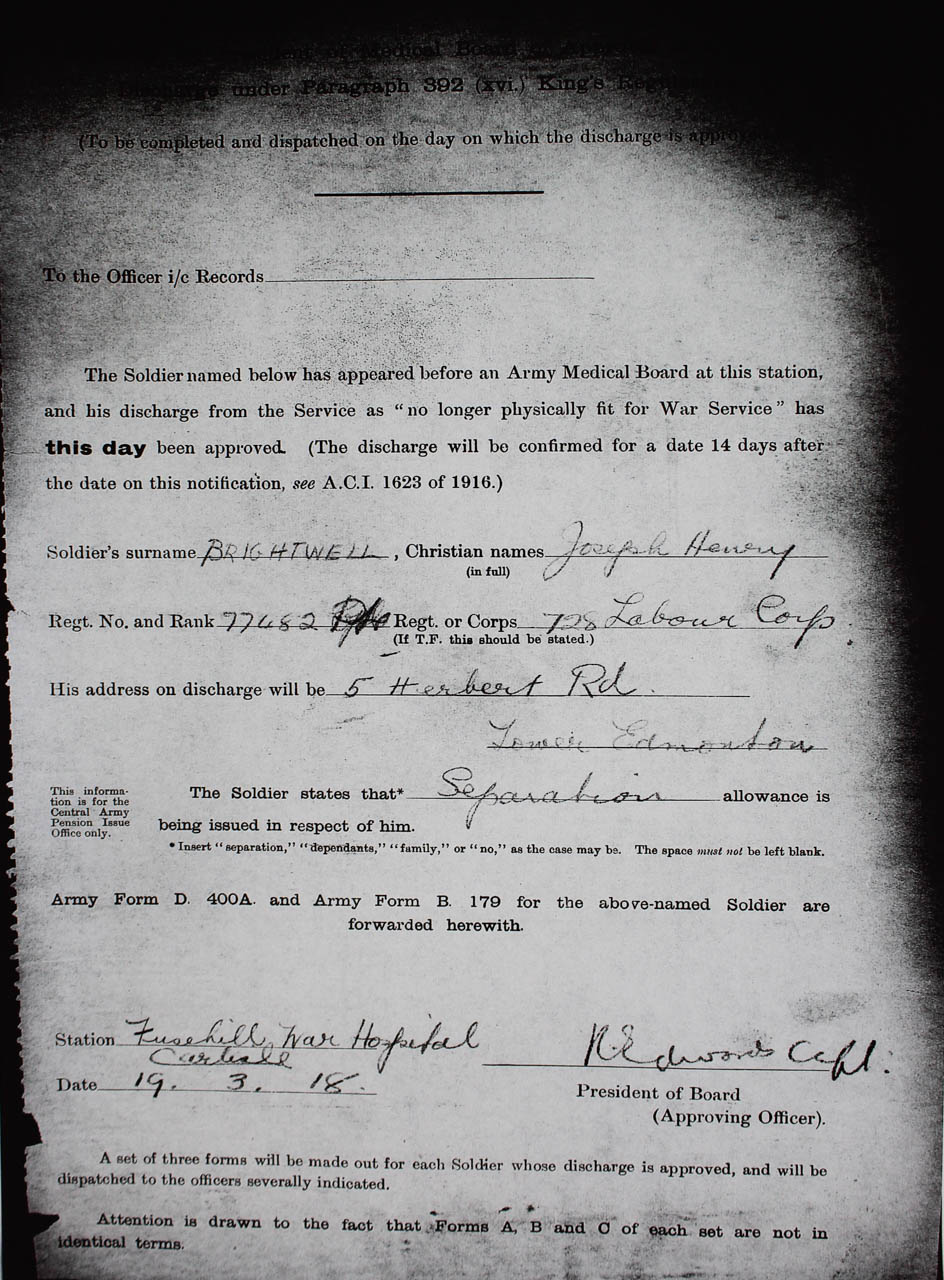 of Medical Board
Discharge under Paragraph 392 (xvi.) King's
(To be completed and dispatched on the day on which the discharge is
To the Officer i/c Records
The Soldier named below has appeared before an Army Medical Board at this station,
and his discharge from the Service as "no longer physically fit for War Service" has
this day been approved. (The discharge will be confirmed for a date 14 days after
the date on this notification, see A.C.I. 1623 of 1916.)
Soldier's surname BRIGHTWELL , Christian names Joseph Henry
(in full)
Regt. No. and Rank 77482 Regt. or Corps 728 Labour Corps.
(If T.F. this should be stated.)
His address on discharge will be 5 Herbert Rd.
Lower Edmonton
This informa-
tion is for the
Central Army
Pension Issue
Office only.
The Soldier states that* Separation allowance is
being issued in respect of him.
* Insert "separation," "dependants," "family," or "no," as the case may be. The space must not be left blank.
Army Form D. 400A. and Army Form B. 179 for the above-named Soldier are
forwarded herewith.
Station Fusehill War Hospital
Carlisle
Date 19. 3. 18.
Edwards Capt.
President of Board
(Approving Officer).
A set of three forms will be made out for each Soldier whose discharge is approved, and will be
dispatched to the officers severally indicated.
Attention is drawn to the fact that Forms A, B and C of each set are not in
identical terms.